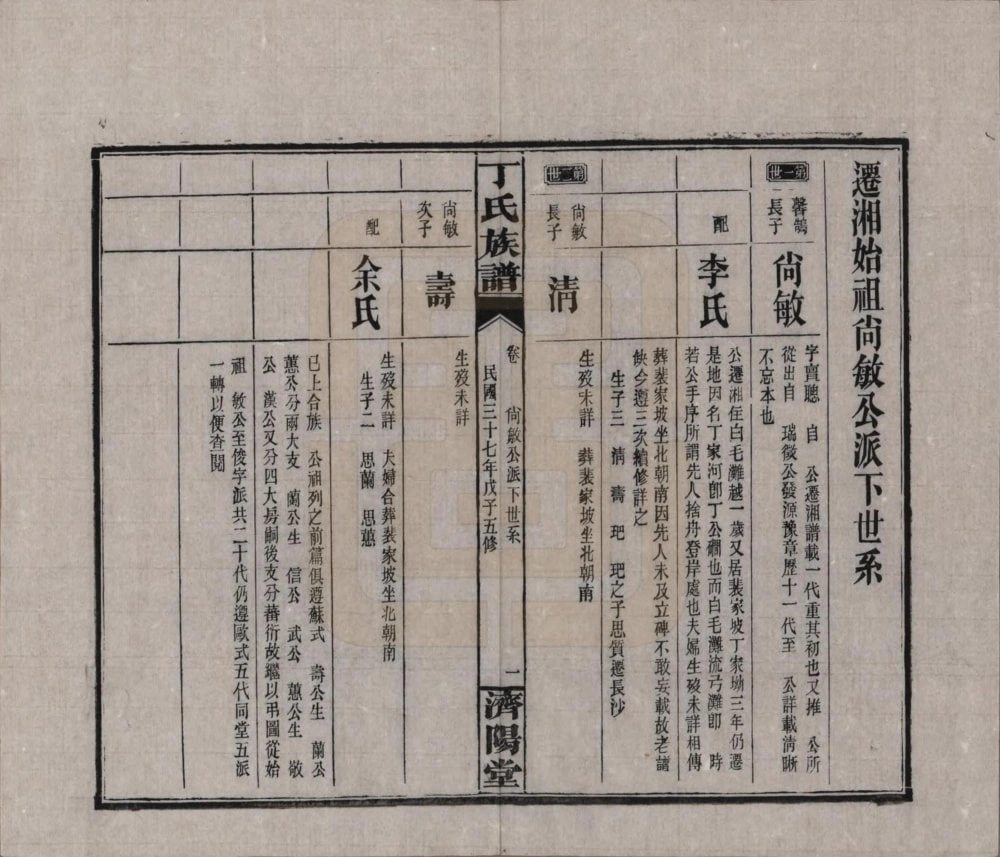 遷湘始祖尙敏公派下世系
第一世
馨鵠
長子
尙敏
字賣聰　自　公遷湘譜載一代重其初也又推　公所
從出自　瑞徵公發源豫章歷十一代至　公詳載淸晰
不忘本也
配
李氏
公遷湘𠉀白毛灘越一歲又居裴家坡丁家坳三年仍遷
是地因名丁家河卽丁公磵也而白毛灘流弓灘卽　時
若公手序所謂先人捨舟登岸處也夫婦生歿未詳相傳
葬裴家坡坐北朝南因先人未及立碑不敢妄載故老譜
缺今遵三次續修詳之
生子三　淸　壽　玘　玘之子思質遷長沙
第二世
尙敏
長子
淸
生歿未詳　葬裴家坡坐北朝南
丁氏族譜
卷　尙敏公派下世系
民國三十七年戊子五修
一
濟陽堂
尙敏
次子
壽
生歿未詳
配
余氏
生歿未詳　夫婦合葬裴家坡坐北朝南
生子二　思蘭　思蕙
已上合族　公祖列之前篇俱遵蘇式　壽公生　蘭公
蕙公分兩大支　蘭公生　信公　武公　蕙公生　敬
公　漢公又分四大房嗣後支分蕃衍故繼以弔圖從始
祖　敏公至俊字派共二十代仍遵歐式五代同堂五派
一轉以便查閱